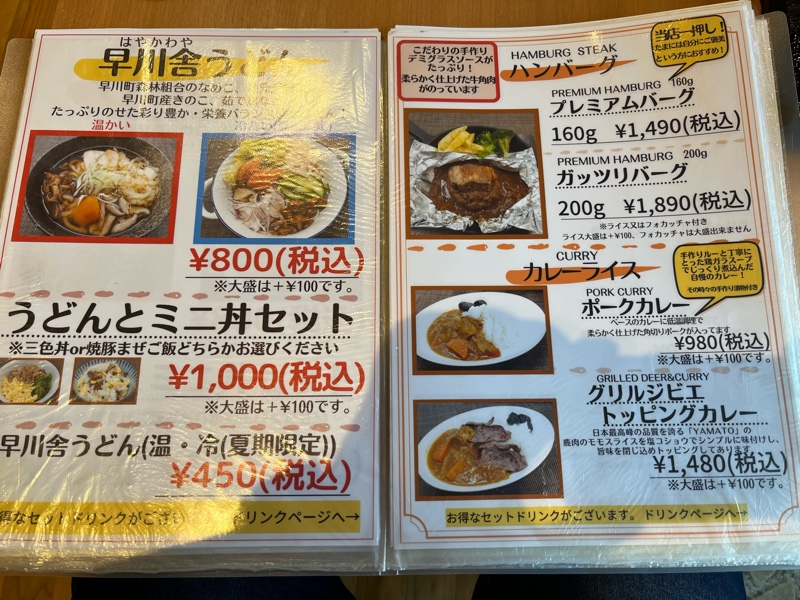 はやかわや
早川舎うどん
早川町森林組合のなめこ、
早川町産きのこ、茹で
たっぷりのせた彩り豊か・栄養バラ
温かい
¥800(税込)
※大盛は＋¥100です。
うどんとミニ丼セット
※三色丼or焼豚まぜご飯どちらかお選びください
¥1,000(税込)
※大盛は＋¥100です。
早川舎うどん(温・冷(夏期限定))
¥450(税込)
得なセットドリンクがござい
ドリンクページへ→
こだわりの手作り
デミグラスソースが
たっぷり！
柔らかく仕上げた牛角肉
がのっています
HAMBURG STEAK
ハンバーグ
当店一押し！
たまには自分にご褒美
という方におすすめ！
PREMIUM HAMBURG 160g
プレミアムバーグ
160g ¥1,490(税込)
PREMIUM HAMBURG 200g
ガッツリバーグ
200g ¥1,890(税込)
※ライス又はフォカッチャ付き
ライス大盛は＋¥100、フォカッチャは大盛出来ません
CURRY
カレーライス
手作りルーと丁寧に
とった鶏ガラスープ
でじっくり煮込んだ
自慢のカレー！
その時々の手作り漬物付き
PORK CURRY
ポークカレー
ベースのカレーに低温調理で
柔らかく仕上げた角切りポークが入ってます
¥980(税込)
※大盛は＋¥100です。
GRILLED DEER&CURRY
グリルジビエ
トッピングカレー
日本最高峰の品質を誇る「YAMATO」の
鹿肉のモモスライスを塩コショウでシンプルに味付けし、
旨味を閉じ込めトッピングしてあります
¥1,480(税込)
※大盛は＋¥100です。
お得なセットドリンクがございます。ドリンクページへ→